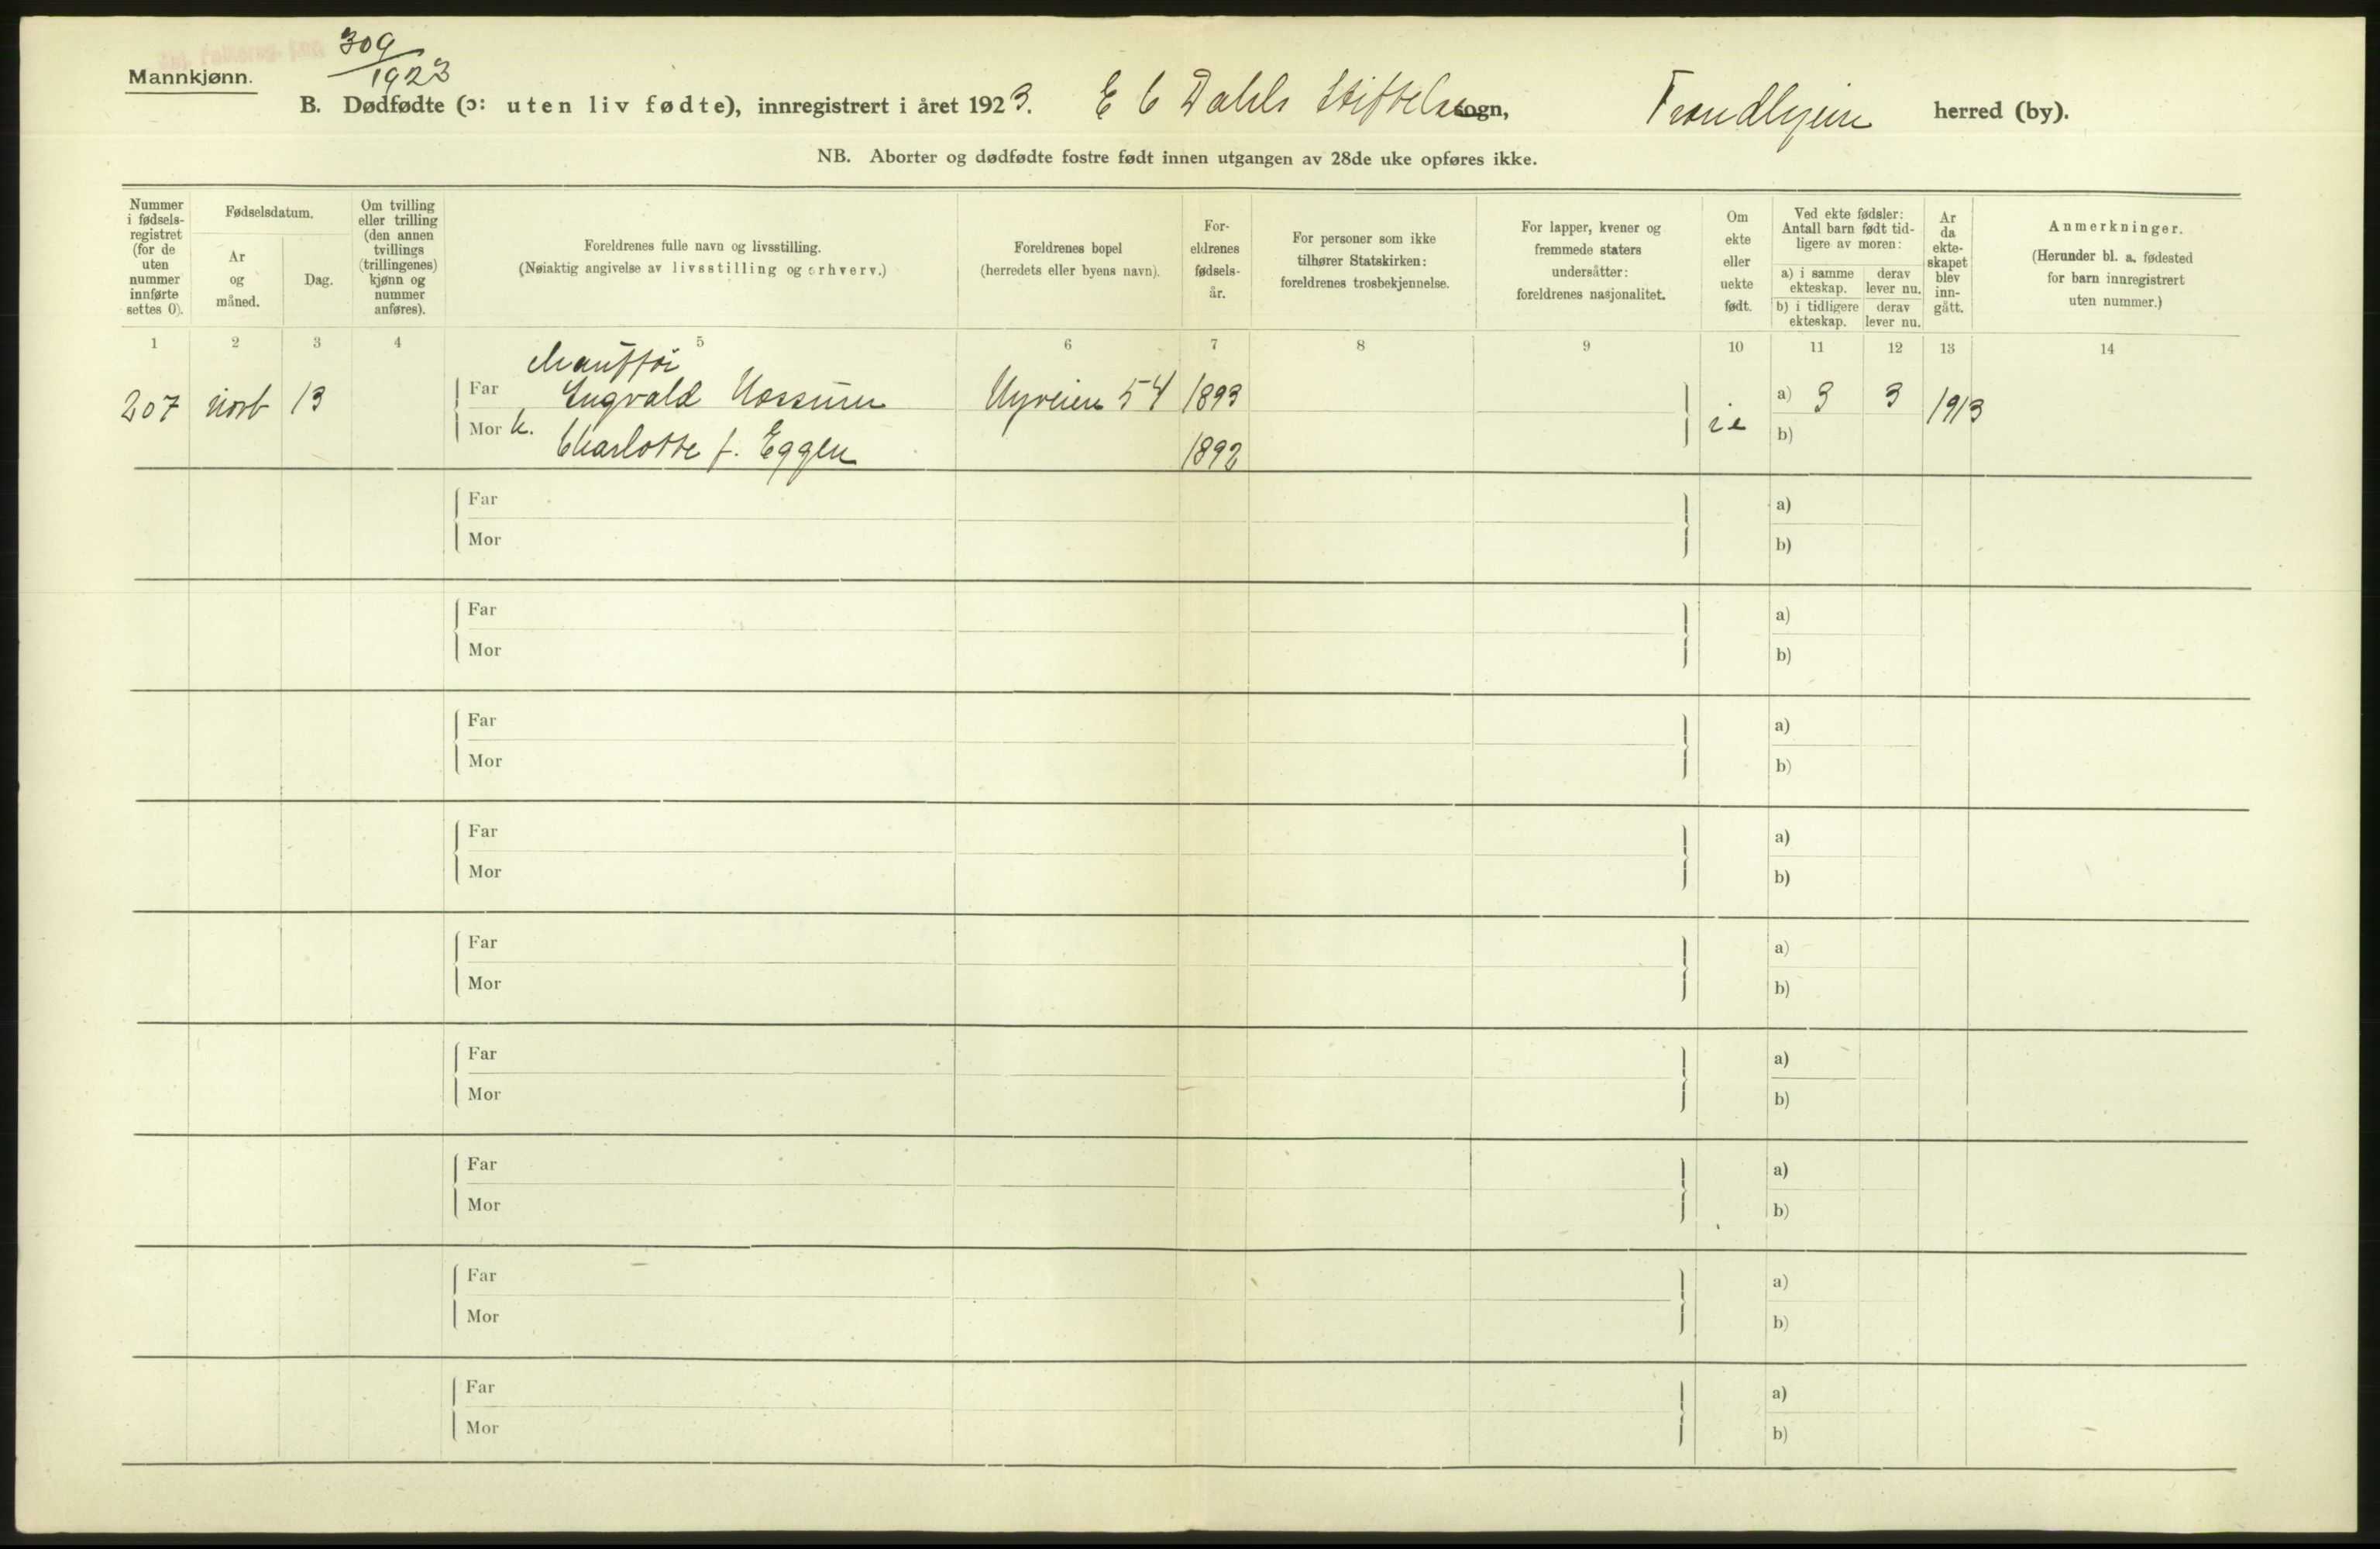 309
1923
Mannkjønn.
B. Dødfødte (ɔ: uten liv fødte), innregistrert i året 1923. E C Dahls Stiftelse sogn, Trondhjem herred (by).
NB. Aborter og dødfødte fostre født innen utgangen av 28de uke opføres ikke.
Nummer
i fødsels-
registret
(for de
uten
nummer
innførte
settes 0).
Fødselsdatum.
Ar
og
måned.
Dag.
Om tvilling
eller trilling
(den annen
tvillings
(trillingenes)
kjønn og
nummer
anføres).
Foreldrenes fulle navn og livsstilling.
(Nøiaktig angivelse av livsstilling og erhverv.)
Foreldrenes bopel
(herredets eller byens navn).
For-
eldrenes
fødsels-
år.
For personer som ikke
tilhører Statskirken:
foreldrenes trosbekjennelse.
For lapper, kvener og
fremmede staters
undersåtter:
foreldrenes nasjonalitet.
Om
ekte
eller
uekte
født.
Ved ekte fødsler:
Antall barn født tid-
ligere av moren:
a) i samme
ekteskap.
derav
lever nu.
b) i tidligere
ekteskap.
derav
lever nu.
Ar
da
ekte-
skapet
blev
inn-
gått.
Anmerkninger.
(Herunder bl. a. fødested
for barn innregistrert
uten nummer.)
1 2 3 4 5 6 7 8 9 10 11 12 13 14
207 13 Far Engvald Nossum Nyveien 54 1893 a) 3 3 1913
Mor h. Charlotte f. Eggen 1892 b)
Far a)
Mor b)
Far a)
Mor b)
Far a)
Mor b)
Far a)
Mor b)
Far a)
Mor b)
Far a)
Mor b)
Far a)
Mor b)
Far a)
Mor b)
Far a)
Mor b)